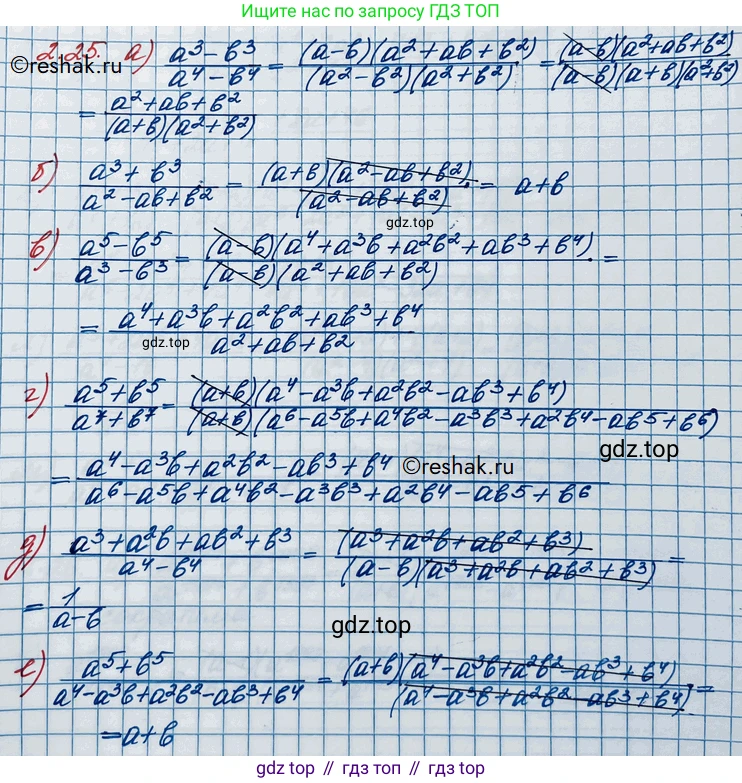 Ищите нас по запросу ГДЗ ТОП
2.25. а) (a³ – b³)/(a⁴ – b⁴) = ((a–b)(a² + ab + b²))/((a² – b²)(a² + b²)) = ((a–b)(a²+ab+b²))/((a–b)(a+b)(a²+b²))
©reshak.ru
= (a²+ab+b²)/((a+b)(a²+b²))
б) (a³ + b³)/(a² – ab + b²) = ((a+b)(a² – ab + b²))/((a² – ab + b²)) = a+b
gdz.top
в) (a⁵ – b⁵)/(a³ – b³) = ((a–b)(a⁴ + a³b + a²b² + ab³ + b⁴))/((a–b)(a² + ab + b²)) =
= (a⁴ + a³b + a²b² + ab³ + b⁴)/(a² + ab + b²)
gdz.top
г) (a⁵ + b⁵)/(a⁷ + b⁷) = ((a+b)(a⁴ – a³b + a²b² – ab³ + b⁴))/((a+b)(a⁶ – a⁵b + a⁴b² – a³b³ + a²b⁴ – ab⁵ + b⁶))
gdz.top
= (a⁴ – a³b + a²b² – ab³ + b⁴)/(a⁶ – a⁵b + a⁴b² – a³b³ + a²b⁴ – ab⁵ + b⁶)
©reshak.ru
д) (a³ + a²b + ab² + b³)/(a⁴ – b⁴) = ((a³ + a²b + ab² + b³))/((a – b)(a³ + a²b + ab² + b³)) =
= 1/(a – b)
gdz.top
е) (a⁵ + b⁵)/(a⁴ – a³b + a²b² – ab³ + b⁴) = ((a+b)(a⁴ – a³b + a²b² – ab³ + b⁴))/((a⁴ – a³b + a²b² – ab³ + b⁴)) =
= a + b
gdz.top // гдз.топ // gdz.top